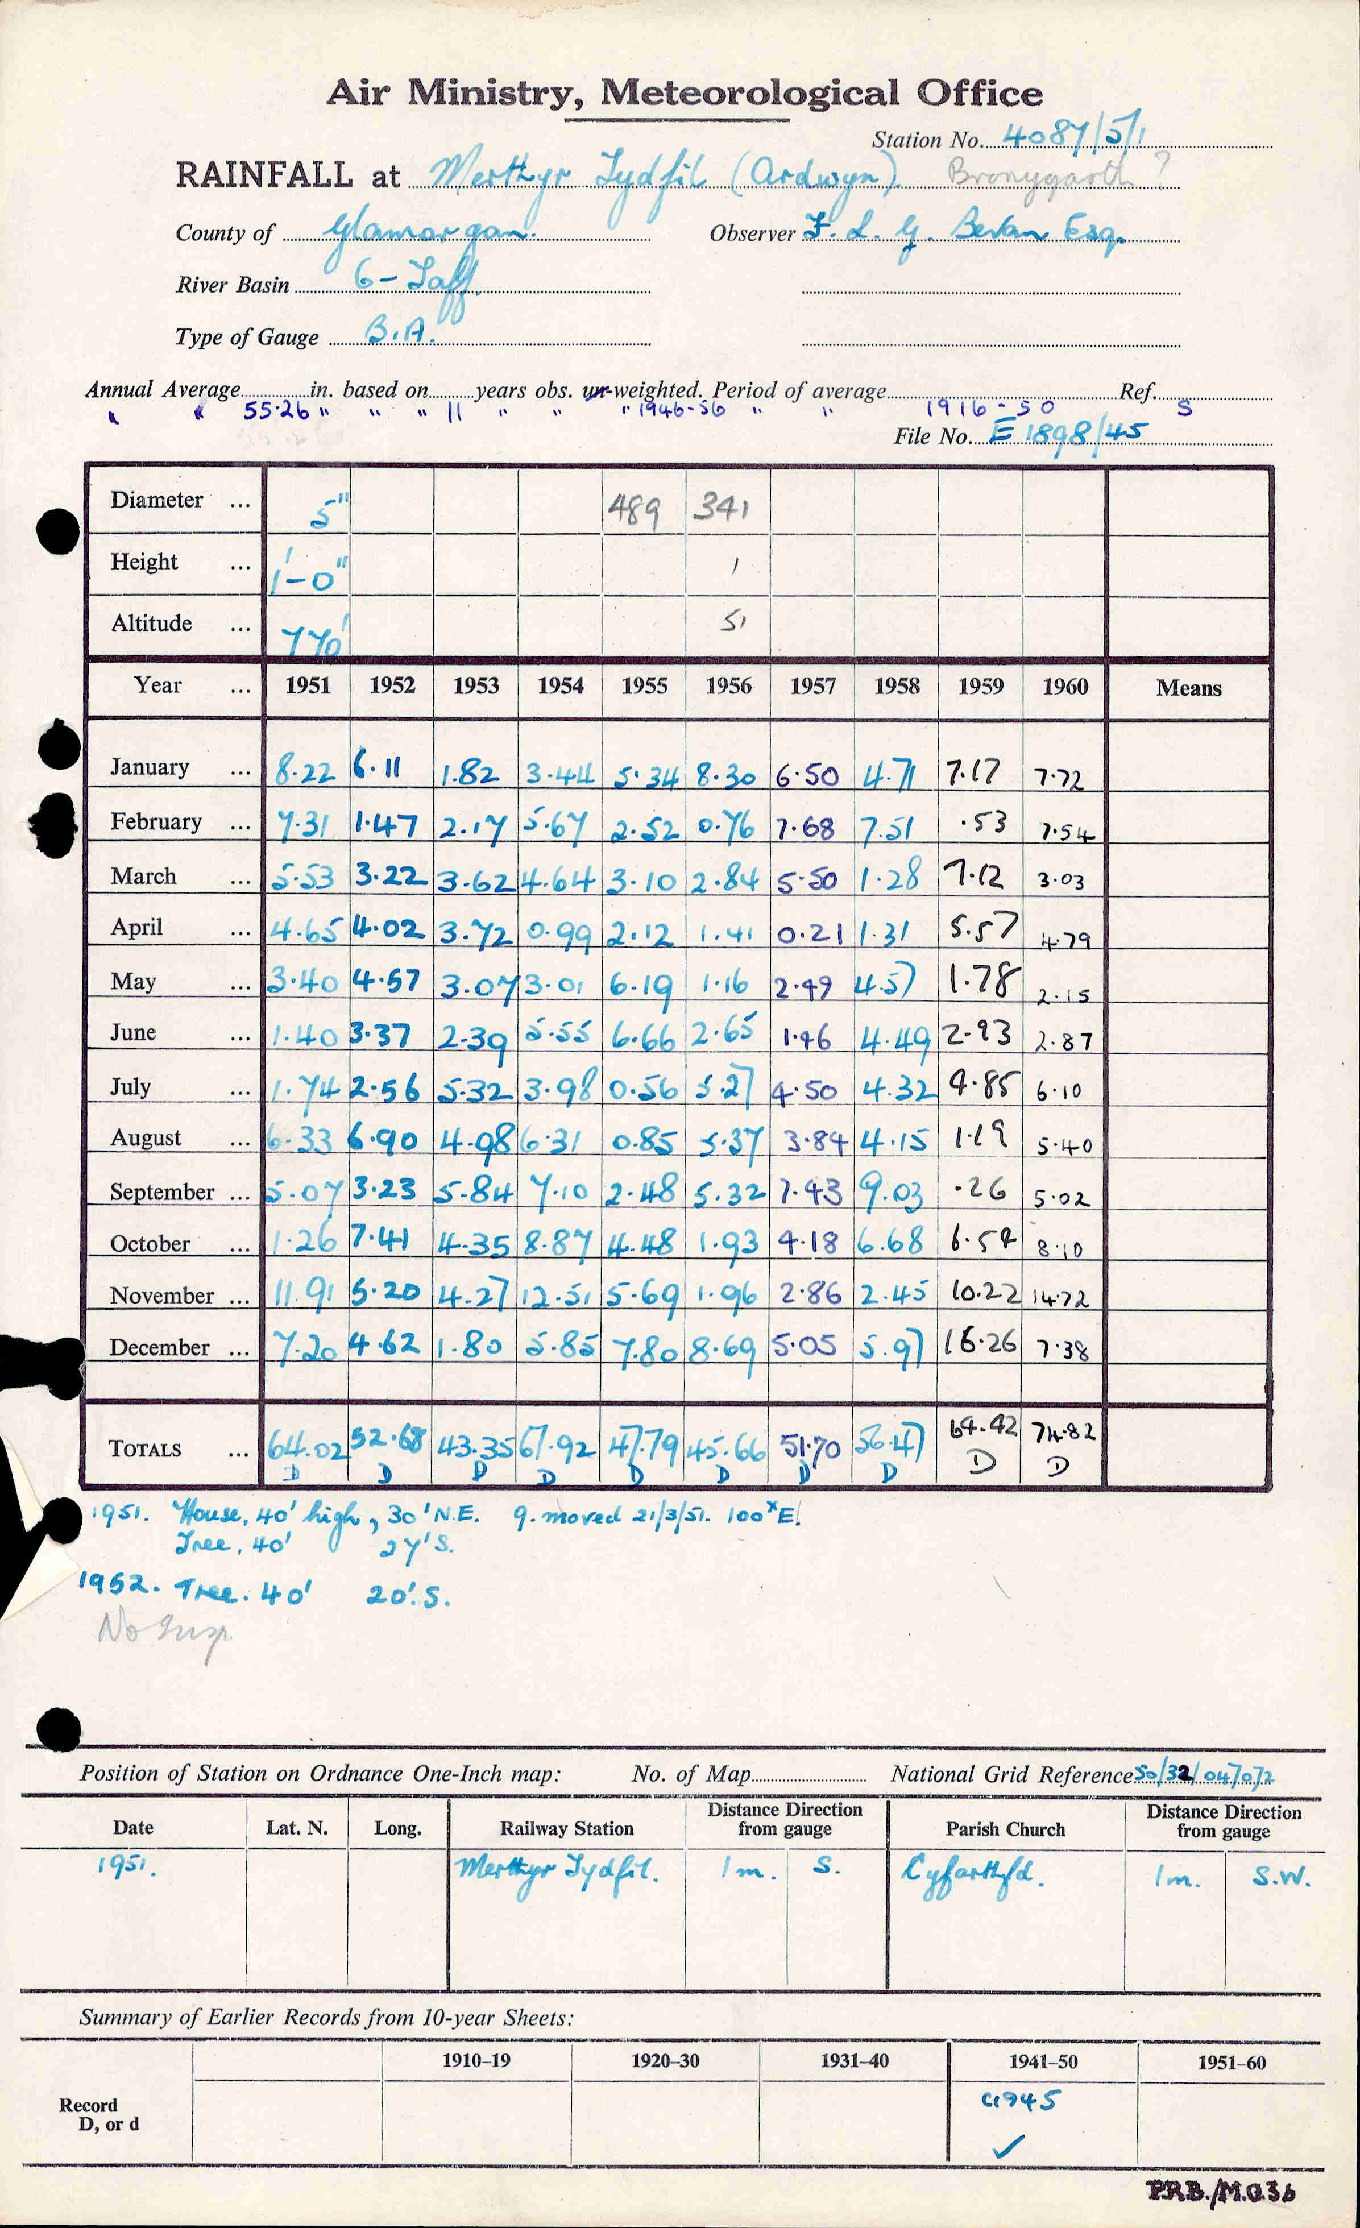 Air Ministry, Meteorological Office
Station No. 4087/5/1
RAINFALL at Merthyr Tydfil (Ardwyn). Bronygarth ?
County of Glamorgan. Observer F. L. G. Bevan Esq.
River Basin 6 - Taff.
Type of Gauge B.A.
Annual Average in. based on years obs. un-weighted. Period of average Ref.
" " 55.26 " " " 11 " " " 1946-56 " " 1916-50 S
File No. E 1898/45
Diameter ... 5" 489 341
Height ... 1'-0" 1
Altitude ... 770' 51
Year ... 1951 1952 1953 1954 1955 1956 1957 1958 1959 1960 Means
January ... 8.22 6.11 1.82 3.44 5.34 8.30 6.50 4.71 7.17 7.72
February ... 7.31 1.47 2.17 5.67 2.52 0.76 7.68 7.51 .53 7.54
March ... 5.53 3.22 3.62 4.64 3.10 2.84 5.50 1.28 7.12 3.03
April ... 4.65 4.02 3.72 0.99 2.12 1.41 0.21 1.31 5.57 4.79
May ... 3.40 4.57 3.07 3.01 6.19 1.16 2.49 4.57 1.78 2.15
June ... 1.40 3.37 2.39 5.55 6.66 2.65 1.46 4.49 2.93 2.87
July ... 1.74 2.56 5.32 3.98 0.56 5.27 4.50 4.32 4.85 6.10
August ... 6.33 6.90 4.98 6.31 0.85 5.37 3.84 4.15 1.19 5.40
September ... 5.07 3.23 5.84 7.10 2.48 5.32 7.43 9.03 .26 5.02
October ... 1.26 7.41 4.35 8.87 4.48 1.93 4.18 6.68 6.54 8.10
November ... 11.91 5.20 4.27 12.51 5.69 1.96 2.86 2.45 10.22 14.72
December ... 7.20 4.62 1.80 5.85 7.80 8.69 5.05 5.97 16.26 7.38
TOTALS ... 64.02 52.68 43.35 67.92 47.79 45.66 51.70 56.47 64.42 74.82
D D D D D D D D D D
1951. House, 40' high, 30' N.E. g. moved 21/3/51. 100ˣ E.
Tree, 40' 27' S.
1952. Tree. 40' 20'. S.
No Insp
Position of Station on Ordnance One-Inch map: No. of Map National Grid Reference SO/32/047072
Date Lat. N. Long. Railway Station Distance Direction from gauge Parish Church Distance Direction from gauge
1951. Merthyr Tydfil. 1m. S. Cyfarthfa. 1m. S.W.
Summary of Earlier Records from 10-year Sheets:
1910-19 1920-30 1931-40 1941-50 1951-60
Record D, or d c1945
✓
P.R.B./M.O.36